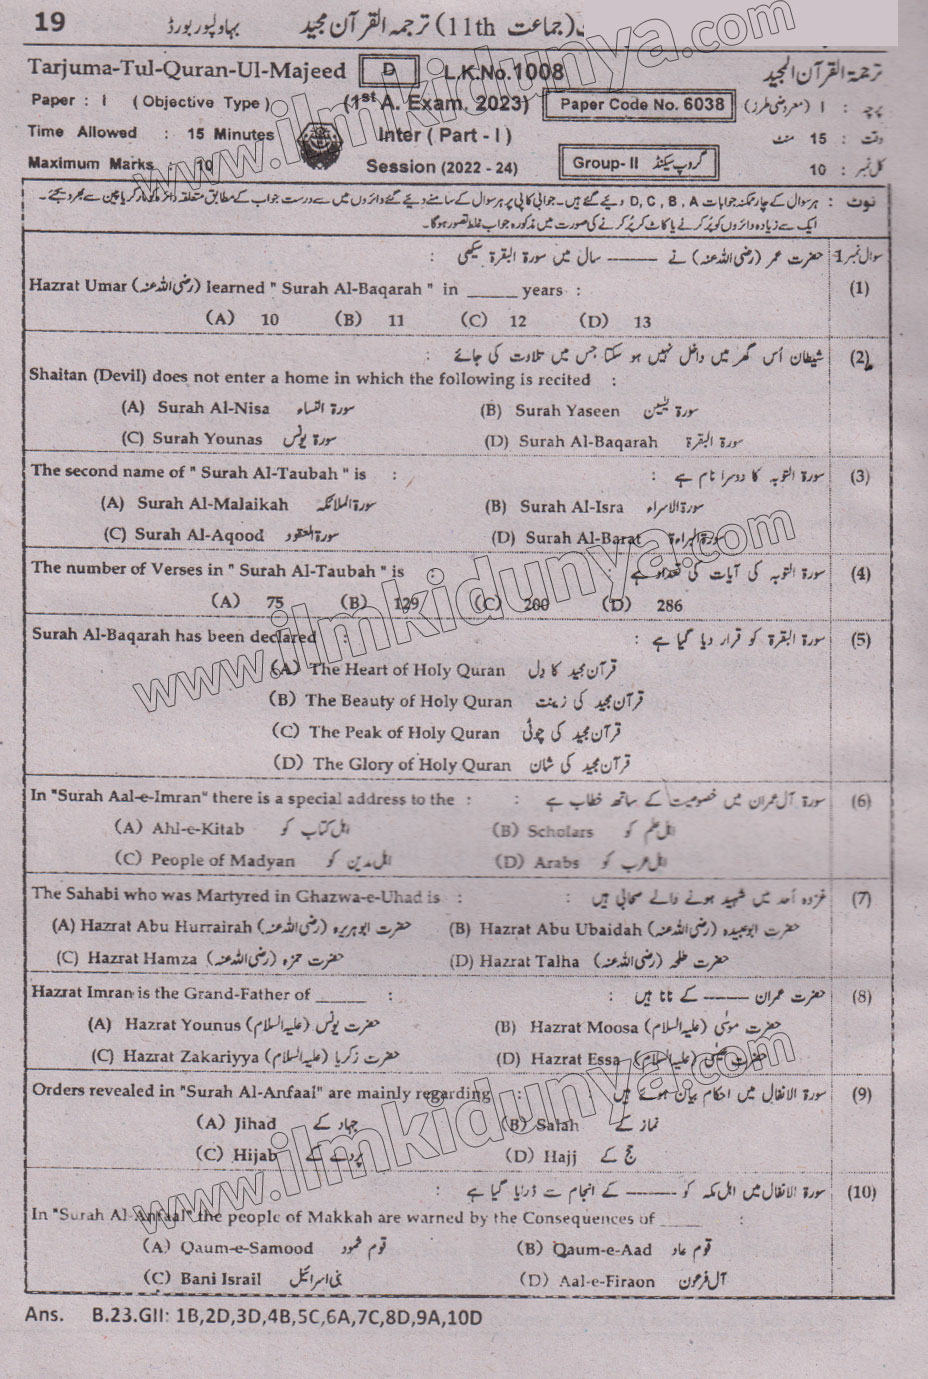 19 (جماعت 11th) ترجمہ القرآن مجید بہاولپور بورڈ
Tarjuma-Tul-Quran-Ul-Majeed D L.K.No.1008 ترجمۃ القرآن المجید
Paper : I ( Objective Type ) (1st A. Exam. 2023) Paper Code No. 6038 پرچہ : I (معروضی طرز)
Time Allowed : 15 Minutes Inter ( Part - I ) وقت : 15 منٹ
Maximum Marks : 10 Session (2022 - 24) Group- II گروپ سیکنڈ کل نمبر : 10
نوٹ : ہر سوال کے چار ممکنہ جوابات D , C , B , A دیئے گئے ہیں۔ جوابی کاپی پر ہر سوال کے سامنے دیئے گئے دائروں میں سے درست جواب کے مطابق متعلقہ دائرہ کو مارکر یا پین سے بھر دیجئے۔
ایک سے زیادہ دائروں کو پُر کرنے یا کاٹ کر پُر کرنے کی صورت میں مذکورہ جواب غلط تصور ہوگا۔
سوال نمبر 1 حضرت عمر (رضی اللہ عنہ) نے -------- سال میں سورۃ البقرۃ سیکھی :
Hazrat Umar (رضی اللہ عنہ) learned " Surah Al-Baqarah " in _____ years : (1)
(A) 10 (B) 11 (C) 12 (D) 13
(2) شیطان اُس گھر میں داخل نہیں ہو سکتا جس میں تلاوت کی جائے :
Shaitan (Devil) does not enter a home in which the following is recited :
(A) Surah Al-Nisa سورۃ النساء (B) Surah Yaseen سورۃ یٰسین
(C) Surah Younas سورۃ یونس (D) Surah Al-Baqarah سورۃ البقرۃ
The second name of " Surah Al-Taubah " is : سورۃ التوبہ کا دوسرا نام ہے : (3)
(A) Surah Al-Malaikah سورۃ الملائکہ (B) Surah Al-Isra سورۃ الاسراء
(C) Surah Al-Aqood سورۃ العقود (D) Surah Al-Barat سورۃ البراءۃ
The number of Verses in " Surah Al-Taubah " is : سورۃ التوبہ کی آیات کی تعداد ہے (4)
(A) 75 (B) 129 (C) 200 (D) 286
Surah Al-Baqarah has been declared : سورۃ البقرۃ کو قرار دیا گیا ہے : (5)
(A) The Heart of Holy Quran قرآن مجید کا دِل
(B) The Beauty of Holy Quran قرآن مجید کی زینت
(C) The Peak of Holy Quran قرآن مجید کی چوٹی
(D) The Glory of Holy Quran قرآن مجید کی شان
In "Surah Aal-e-Imran" there is a special address to the : سورۃ آل عمران میں خصوصیت کے ساتھ خطاب ہے : (6)
(A) Ahl-e-Kitab اہل کتاب کو (B) Scholars اہل علم کو
(C) People of Madyan اہل مدین کو (D) Arabs اہل عرب کو
The Sahabi who was Martyred in Ghazwa-e-Uhad is : غزوہ اُحد میں شہید ہونے والے صحابی ہیں : (7)
(A) Hazrat Abu Hurrairah حضرت ابو ہریرہ (رضی اللہ عنہ) (B) Hazrat Abu Ubaidah حضرت ابو عبیدہ (رضی اللہ عنہ)
(C) Hazrat Hamza حضرت حمزہ (رضی اللہ عنہ) (D) Hazrat Talha حضرت طلحہ (رضی اللہ عنہ)
Hazrat Imran is the Grand-Father of _____ : حضرت عمران -------- کے نانا ہیں : (8)
(A) Hazrat Younus حضرت یونس (علیہ السلام) (B) Hazrat Moosa حضرت موسٰی (علیہ السلام)
(C) Hazrat Zakariyya حضرت زکریا (علیہ السلام) (D) Hazrat Essa حضرت عیسٰی (علیہ السلام)
Orders revealed in "Surah Al-Anfaal" are mainly regarding : سورۃ الانفال میں احکام بیان ہوئے ہیں : (9)
(A) Jihad جہاد کے (B) Salah نماز کے
(C) Hijab پردے کے (D) Hajj حج کے
سورۃ الانفال میں اہل مکہ کو -------- کے انجام سے ڈرایا گیا ہے : (10)
In "Surah Al-Anfaal" the people of Makkah are warned by the Consequences of ____ :
(A) Qaum-e-Samood قوم ثمود (B) Qaum-e-Aad قوم عاد
(C) Bani Israil بنی اسرائیل (D) Aal-e-Firaon آل فرعون
Ans. B.23.GII: 1B,2D,3D,4B,5C,6A,7C,8D,9A,10D
www.ilmkidunya.com
www.ilmkidunya.com
www.ilmkidunya.com